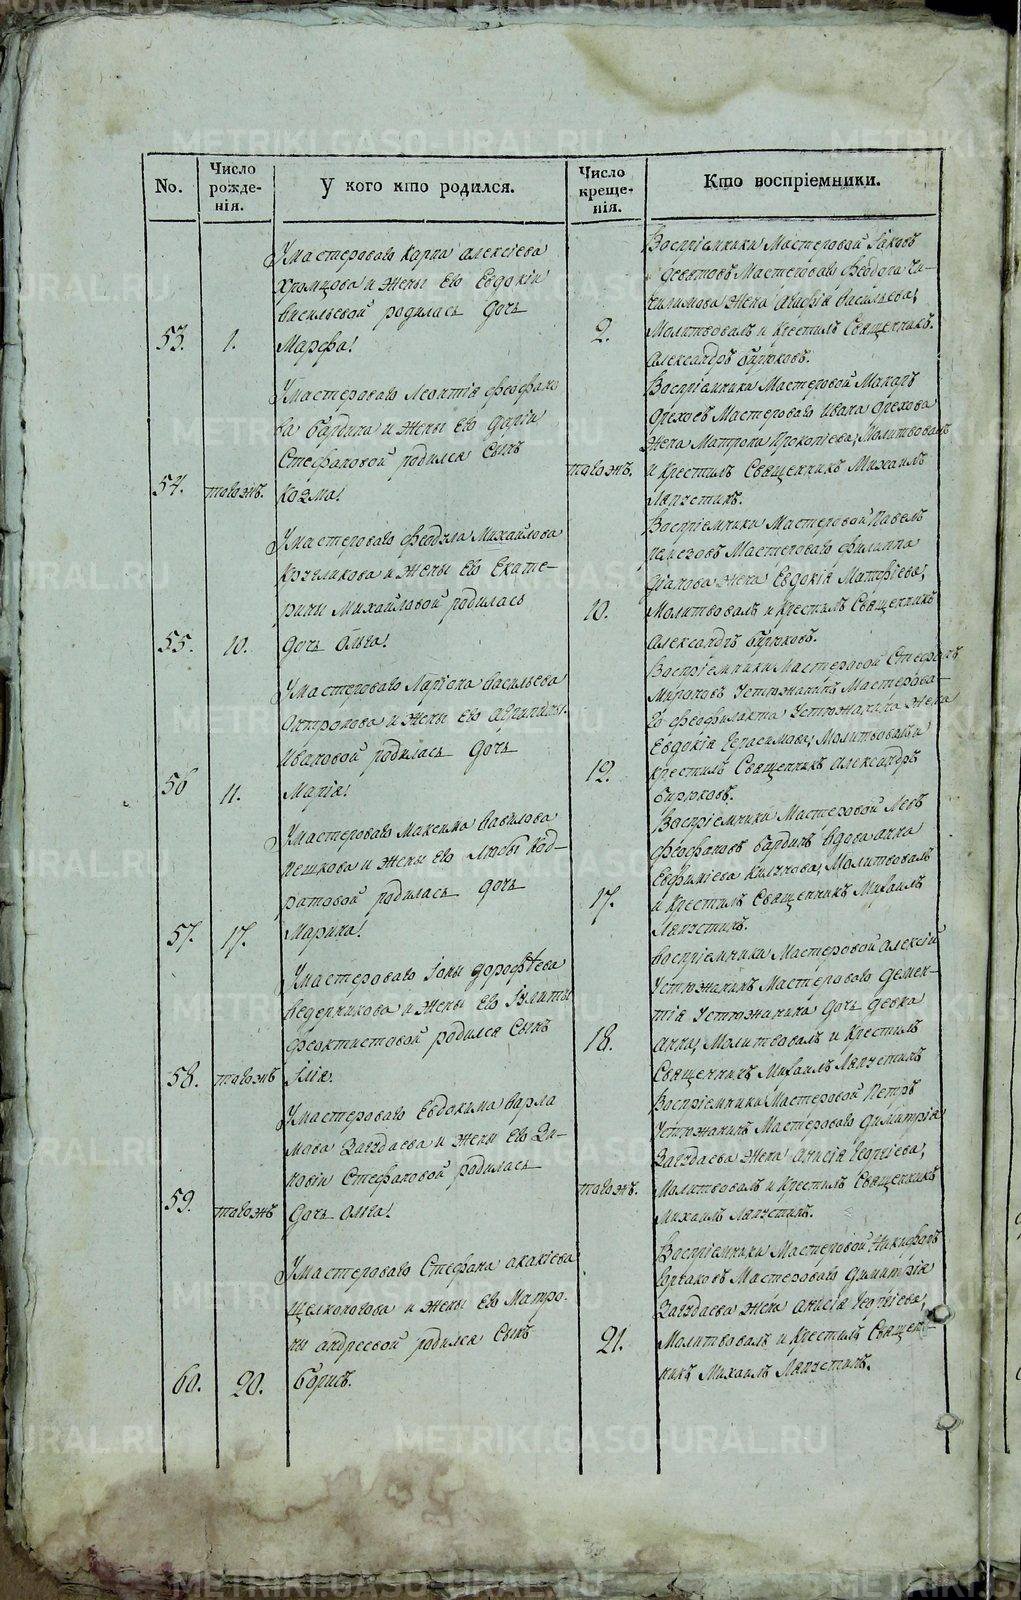 No.
Число рожде-нія.
У кого кто родился.
Число креще-нія.
Кто воспріемники.
53.
1.
У мастероваго Карпа Алексіева
Хромцова и жены его Евдокіи
Васильевой родилась дочь
Марфа!
2.
Воспріемники Мастеровой Іаковъ
Мастероваго Ѳеодора
жена Васильева;
Молитвовалъ и крестилъ Священникъ
Александръ Бирюковъ.
54.
тогожъ.
У мастероваго Леонтія Ѳеофано
ва Бардина и жены его Даріи
Стефановой родился сынъ
Козма!
тогожъ.
Воспріемники Мастеровой Макаръ
Орѣховъ Мастероваго Ивана Орехова
жена Матрона Прокопіева; Молитвовалъ
и крестилъ Священникъ Михаилъ
Ляпустинъ.
55.
10.
У мастероваго Ѳеодула Михайлова
и жены его Екате-
рины Михайловой родилась
дочь Ольга!
10.
Воспріемники Мастеровой Павелъ
Мастероваго Филиппа
жена Евдокія Матфіева;
Молитвовалъ и крестилъ Священникъ
Александръ Бирюковъ.
56
11.
У мастероваго Ларіона Васильева
Антропова и жены его Агрипины
Ивановой родилась дочь
Марія!
12.
Воспріемники Мастеровой Стефанъ
Мироновъ Устюжанинъ Мастерова-
го Ѳеофилакта Устюжанина жена
Евдокія Герасимова; Молитвовалъ и
крестилъ Священникъ Александръ
Бирюковъ.
57.
17.
У мастероваго Максима Вавилова
Пешкова и жены его Любви Код-
ратовой родилась дочь
Марина!
17.
Воспріемники Мастеровой Левъ
Ѳеофановъ Бардинъ вдова Анна
Евфиміева Молитвовалъ
и крестилъ Священникъ Михаилъ
Ляпустинъ.
58.
тогожъ
У мастероваго Іоны Дорофѣева
Ведерникова и жены его Іулиты
Феоктистовой родился сынъ
Илія.
18.
Воспріемники Мастеровой Алексій
Устюжанинъ Мастероваго Демен-
тія Устюжанина дочь девка
Анна; Молитвовалъ и крестилъ
Священникъ Михаилъ Ляпустинъ
59.
тогожъ
У мастероваго Евдокима Варла
мова Загудаева и жены его Зи-
новіи Стефановой родилась
дочь Ольга!
тогожъ.
Воспріемники Мастеровой Петръ
Устюжанинъ Мастероваго Димитрія
Загудаева жена Анисія Георгіева;
Молитвовалъ и крестилъ Священникъ
Михаилъ Ляпустинъ.
60.
20.
У мастероваго Стефана Акакіева
Щелконогова и жены его Матро-
ны Андреевой родился сынъ
Борисъ.
21.
Воспріемники Мастеровой Никифоръ
Мастероваго Димитрія
Загудаева жена Анисія Георгіева;
Молитвовалъ и крестилъ Священ-
никъ Михаилъ Ляпустинъ.
METRIKI.GASO-URAL.RU